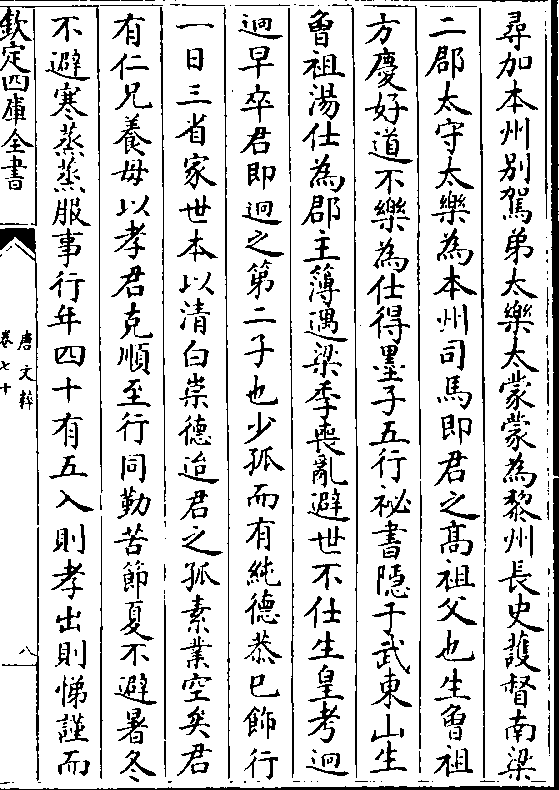 尋加本州别駕弟太樂太蒙蒙為黎州長史䕶督南梁
二郡太守太樂為本州司馬即君之髙祖父也生曾祖
方慶好道不樂為仕得墨子五行祕書隠于武東山生
曾祖湯仕為郡主簿遇梁季喪亂避世不仕生皇考迥
迥早卒君即迥之第二子也少孤而有純德恭已飾行
一日三省家世本以清白崇德迨君之孤素業空矣君
有仁兄養母以孝君克順至行同勤苦節夏不避暑冬
不避寒蒸蒸服事行年四十有五入則孝出則悌謹而
欽定四庫全書
唐文粹
卷七十
八